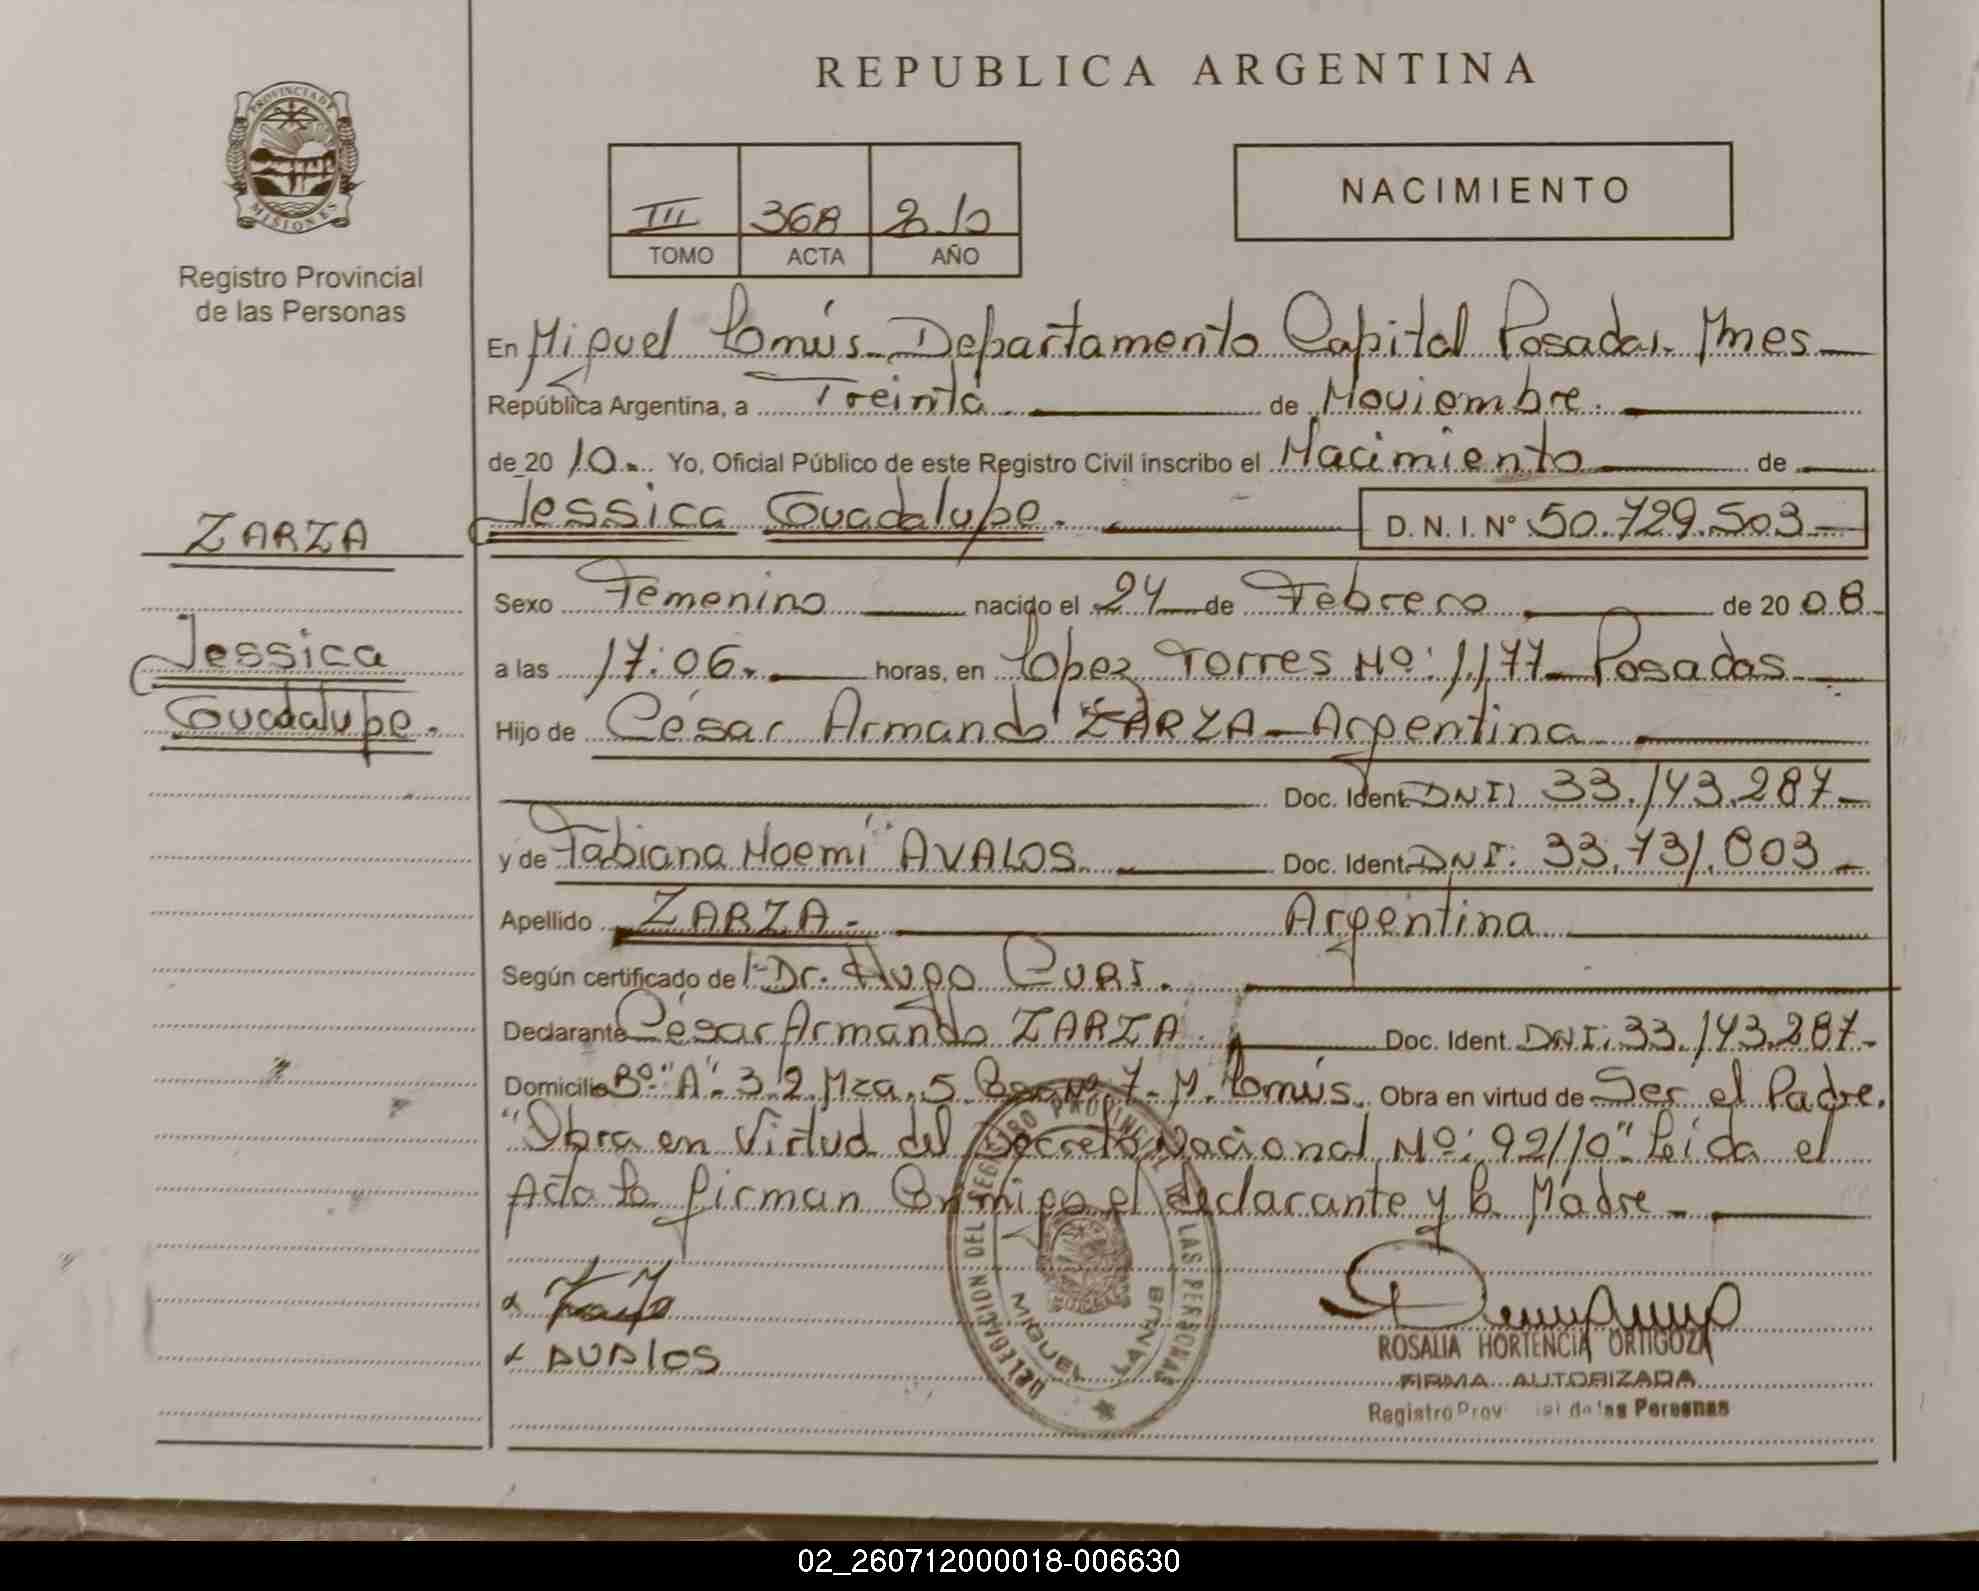 REPUBLICA ARGENTINA
PROVINCIA DE MISIONES
Registro Provincial
de las Personas
III 368 2010
TOMO ACTA AÑO
NACIMIENTO
En Miguel Lanús Departamento Capital Posadas. Mnes
República Argentina, a Treinta de Noviembre.
de 20 10. Yo, Oficial Público de este Registro Civil inscribo el Nacimiento de
Jessica Guadalupe. D. N. I. N° 50.729.503
ZARZA
Jessica
Guadalupe.
Sexo Femenino nacido el 24 de Febrero de 20 08
a las 17:06. horas, en López Torres Nº: 1.177 Posadas
Hijo de César Armando ZARZA - Argentina
Doc. Ident. DNI: 33.143.287
y de Fabiana Noemí AVALOS. Doc. Ident. DNI: 33.731.803
Apellido ZARZA. Argentina
Según certificado de l Dr. Hugo
Declarante César Armando ZARZA. Doc. Ident. DNI: 33.143.287
Domicilio Bº "A" 3.2 Mza. 5 Nº 7 M. Lanús. Obra en virtud de Ser el Padre.
"Obra en Virtud del Decreto Nacional Nº: 92/10" Leída el
Acta la firman Conmigo el declarante y la Madre
AVALOS
DELEGACION DEL REGISTRO PROVINCIAL DE LAS PERSONAS
MIGUEL LANUS
ROSALIA HORTENCIA ORTIGOZA
FIRMA AUTORIZADA
Registro Provincial de las Personas
02_260712000018-006630